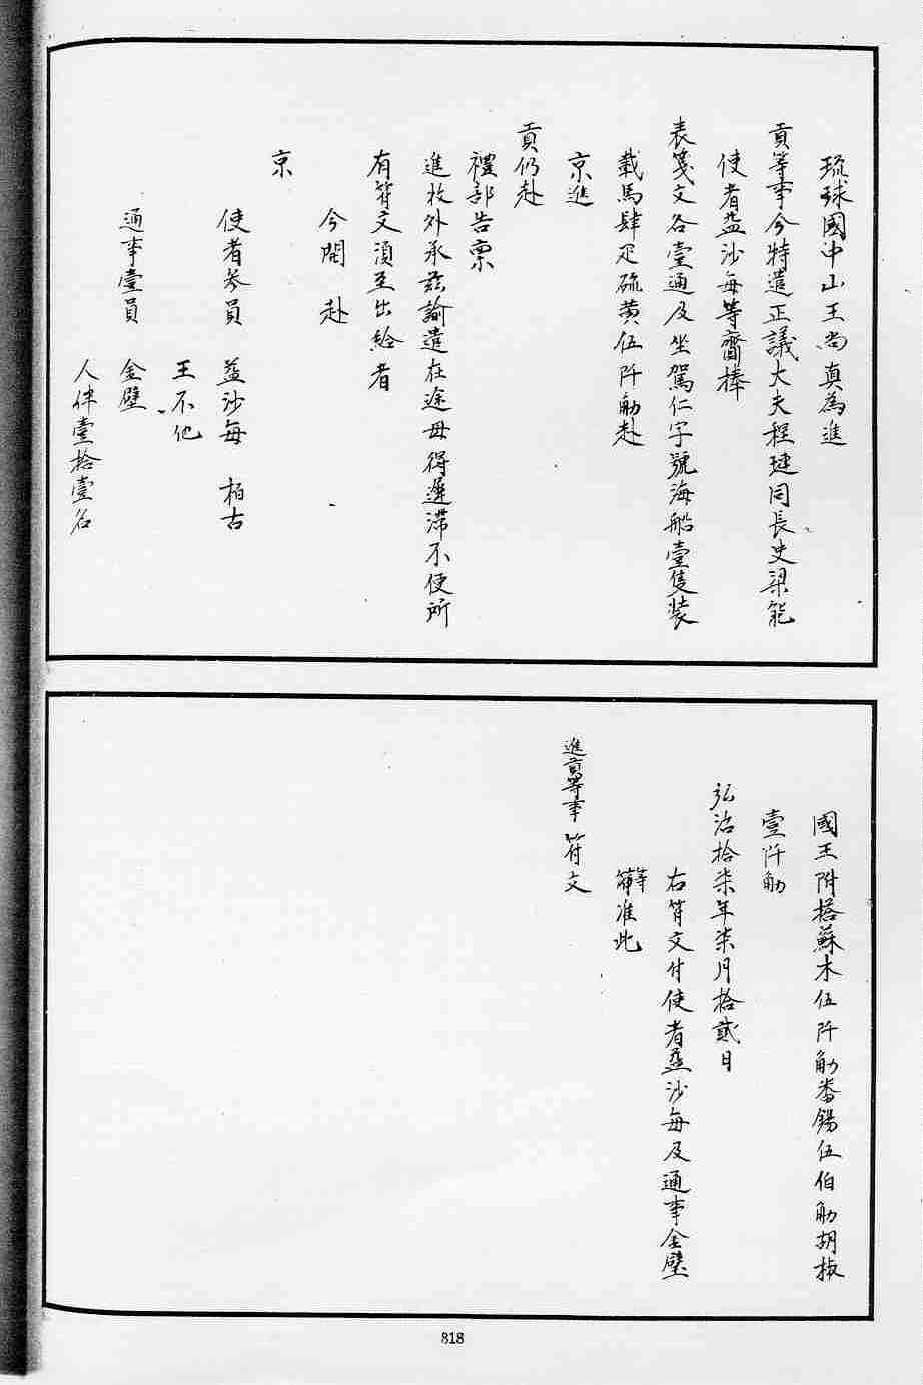 琉球國中山王尚真為進
貢等事今特遣正議大夫程璉同長史梁能
使者益沙每等齎捧
表箋文各壹通及坐駕仁字號海船壹隻裝
載馬肆疋硫黄伍阡觔赴
京進
貢仍赴
禮部告禀
進收外承茲諭遣在途毋得遲滯不便所
有符文須至出給者
今開赴
京
使者參員 益沙每 栢古
王不他
通事壹員 金璧
人伴壹拾壹名
國王附搭蘇木伍阡觔番錫伍伯觔胡椒
壹阡觔
弘治拾柒年柒月拾貳日
右符文付使者益沙每及通事金璧
等准此
進貢等事符文
818